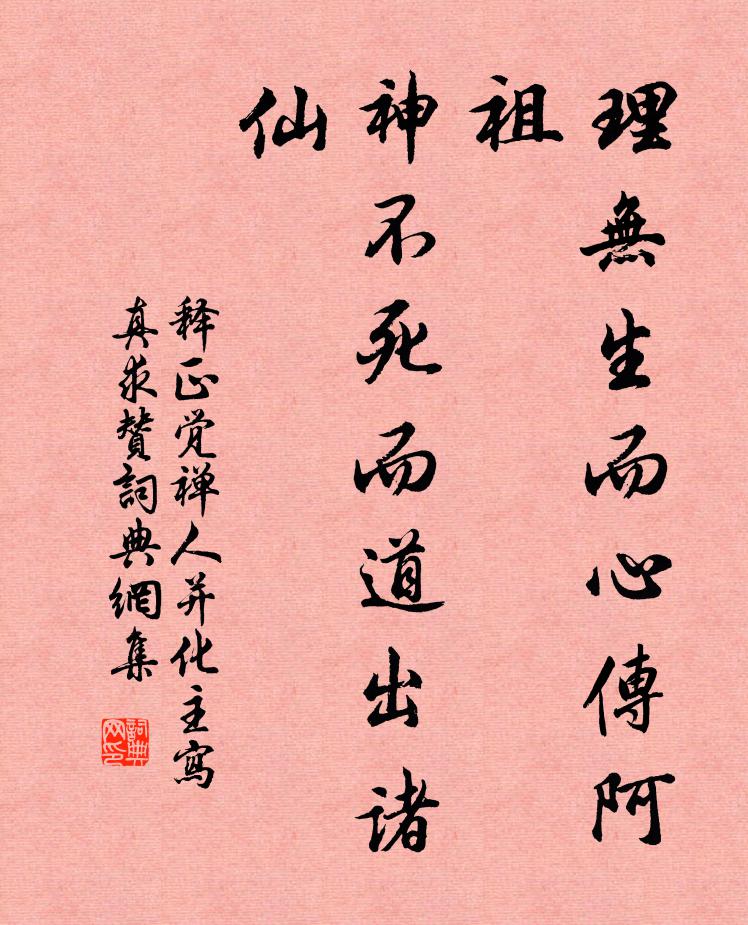 理無生而心傳阿
祖
神不死而道出諸
仙
释正觉禅人并化主寫
真求贊詞典網集
詞典
网印